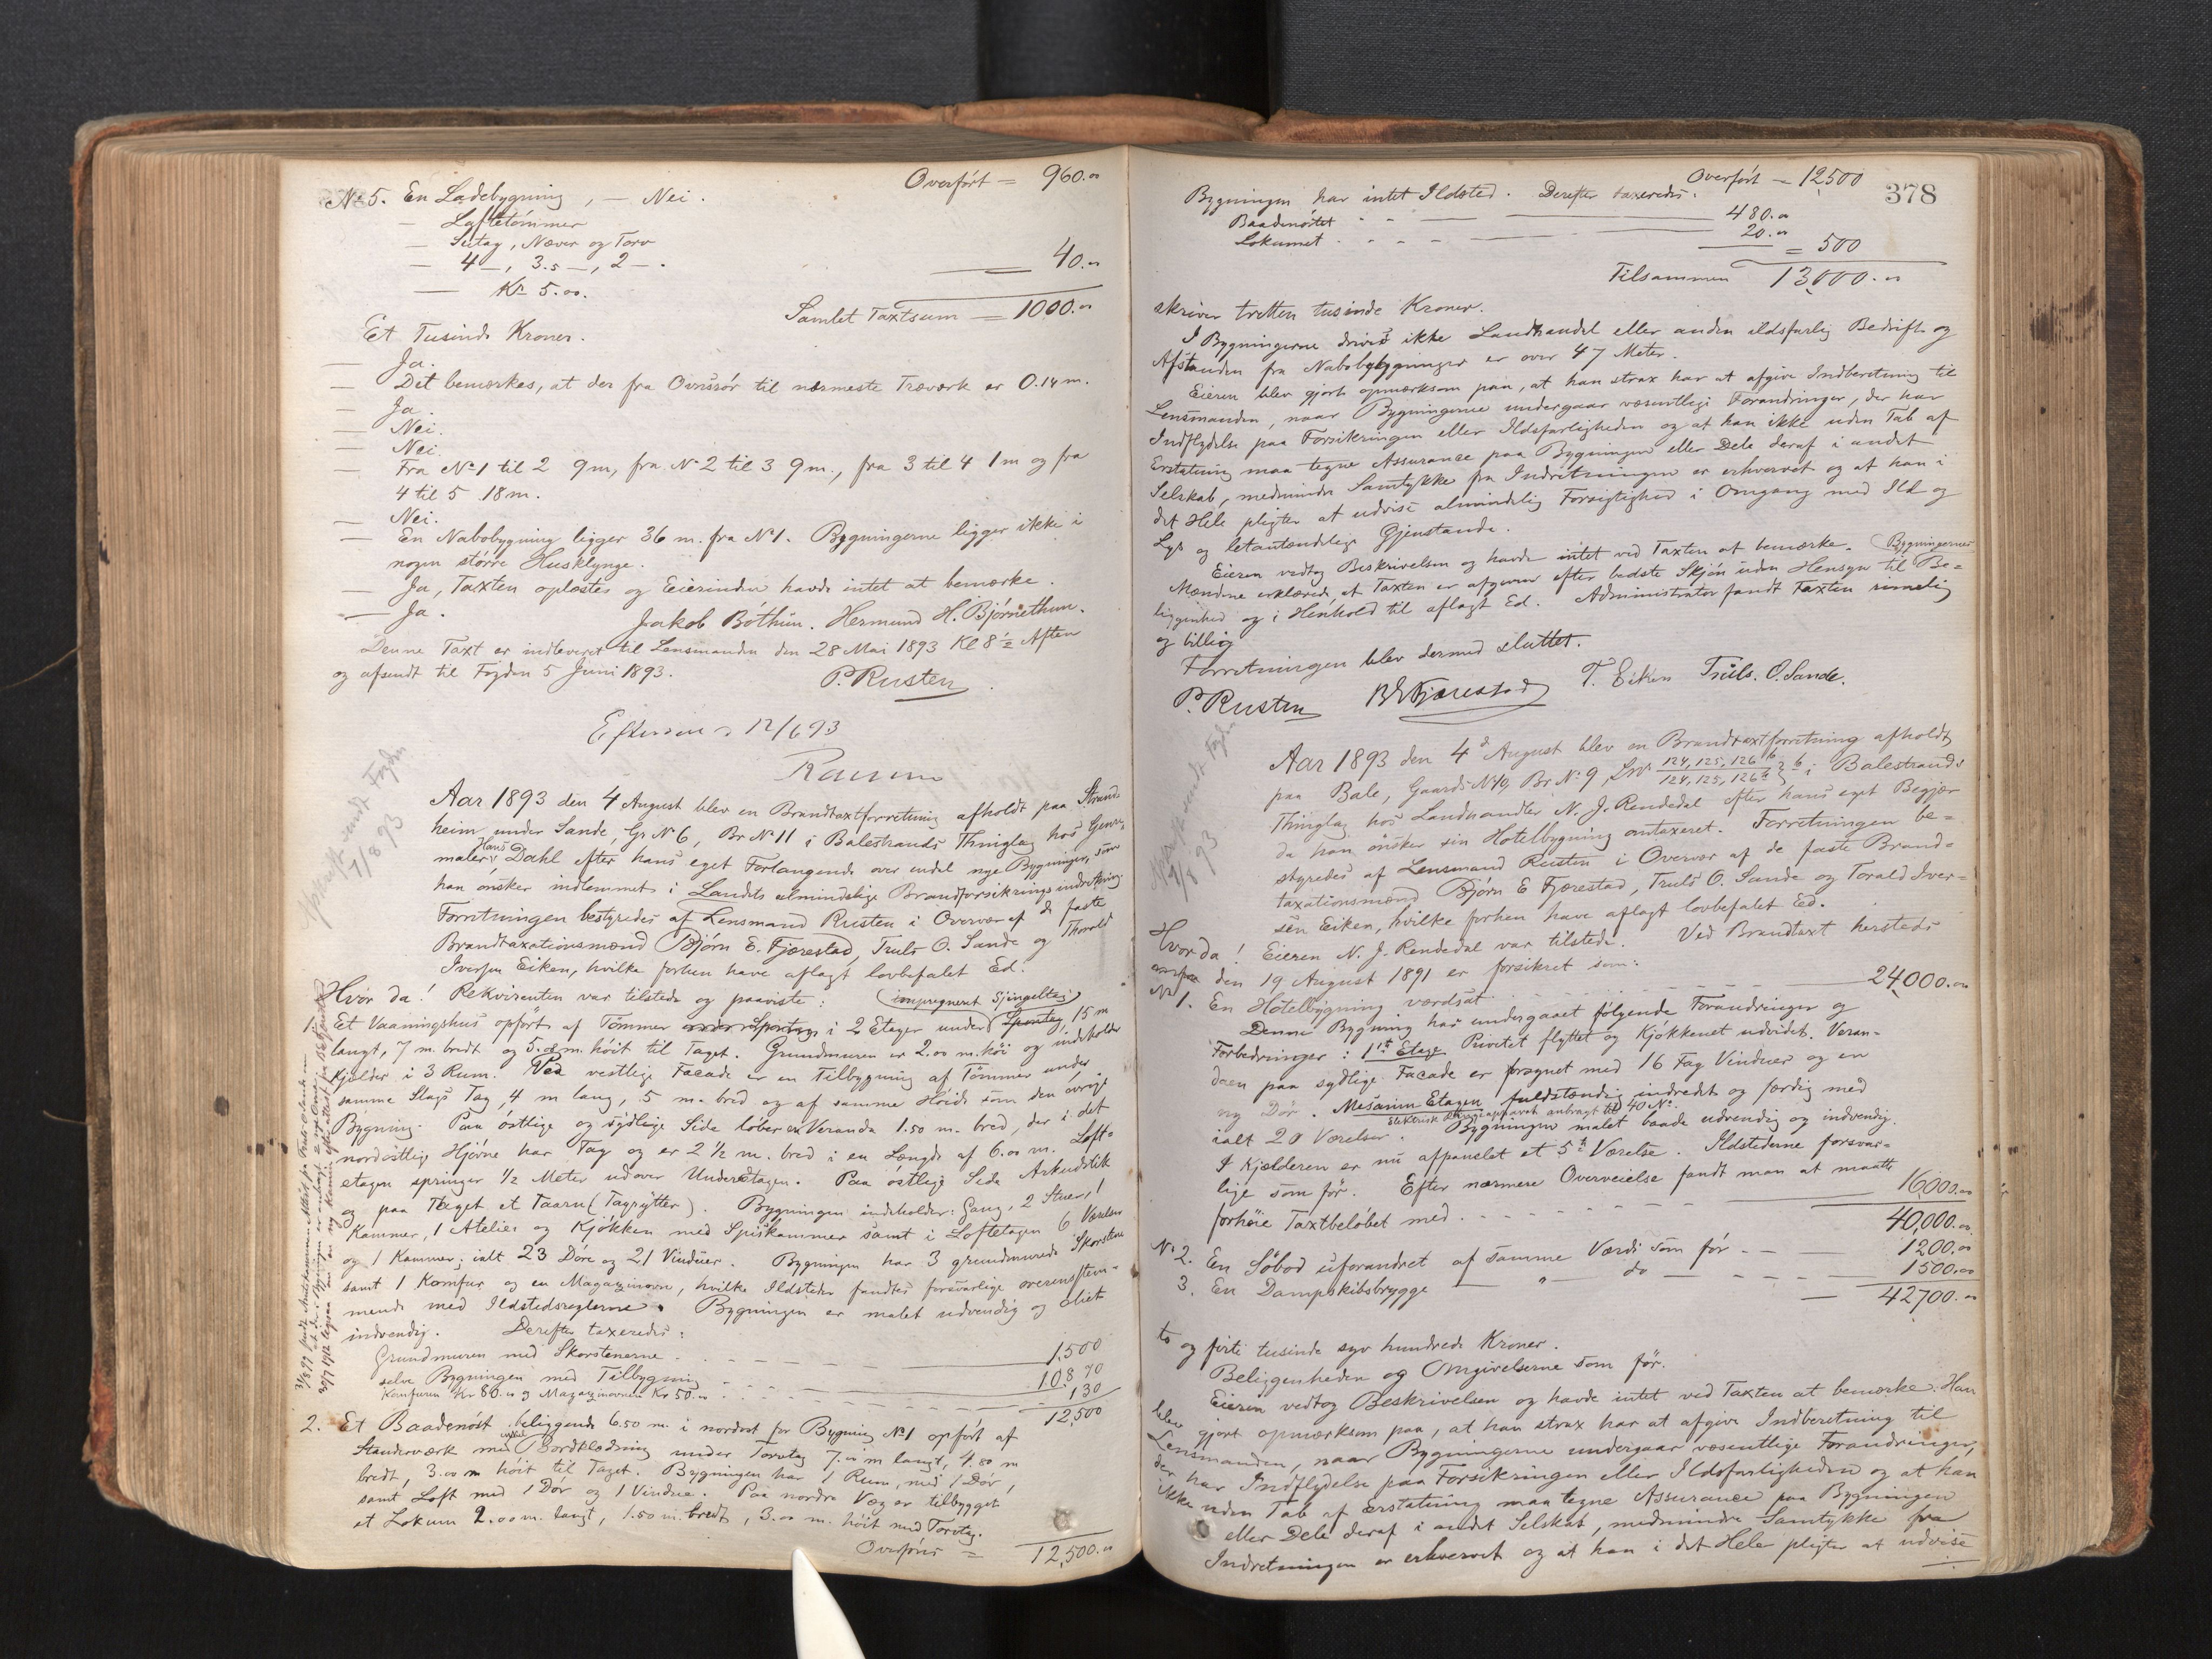 Overført = 960.00
No 5. En Ladebygning, — Nei.
— Laftetømmer
— Sutag, Næver og Torv
— 4 —, 3.5 —, 2 —.
— 40.00
— Kr 5.00.
Samlet Taxtsum = 1000.00
Et Tusinde Kroner.
— Ja.
— Det bemærkes, at der fra Ovnsrör til nærmeste Træværk er 0.14 m.
— Ja.
— Nei.
— Nei.
— Fra No 1 til 2 9m, fra No 2 til 3 9m., fra 3 til 4 1m og fra
4 til 5 18m.
— Nei.
— En Nabobygning ligger 36 m. fra No 1. Bygningerne ligger ikke i
nogen større Husklynge.
— Ja, Taxten oplæstes og Eierinden havde intet at bemærke.
— Ja.
Jakob Böthun. Hermund H. Bjørnethun.
Denne Taxt er indleveret til Lensmanden den 28 Mai 1893 Kl 8½ Aften
og afsendt til Fogden 5 Juni 1893.
P. Rusten
12/6 93
Afskrift sendt Fogden
7/8 93
Aar 1893 den 4 August blev en Brandtaxtforretning afholdt paa Strand-
heim under Sande, Gr No 6, Br No 11 i Balestrands Thinglag hos Genre-
maler Hans Dahl efter hans eget Forlangende over endel nye Bygninger, som
han ønsker indlemmet i Landets almindelige Brandforsikringsindretning.
Forretningen bestyredes af Lensmand Rusten i Overvær af de faste
Brandtaxationsmænd Bjørn E. Fjærestad, Truls O. Sande og Thorald
Iversen Eiken, hvilke forhen have aflagt lovbefalet Ed.
Hvor da! Rekvirenten var tilstede og paaviste:
(impregneret Spingeltag)
1. Et Vaaningshus opført af Tømmer i 2 Etager under Spontag 15 m
langt, 7 m. bredt og 5.08 m. höit til Taget. Grundmuren er 2.00 m. höi og indeholder
Kjælder i 3 Rum. Ved vestlige Facade er en Tilbygning af Tömmer under
samme Slags Tag, 4 m lang, 5 m. bred og af samme Höide som den øvrige
Bygning. Paa østlige og sydlige Side løber en Veranda 1.50 m. bred, der i det
nordøstlige Hjørne har Tag og er 2½ m. bred i en Længde af 6.00 m. Loft-
etagen springer ½ Meter udover Underetagen. Paa östlige Side Arkudstik
og paa Taget et Taarn (Tagrytter). Bygningen indeholder: Gang, 2 Stuer, 1
Kammer, 1 Atelier og Kjøkken med Spiskammer samt i Loftetagen 6 Værelser
og 1 Kammer; ialt 23 Døre og 21 Vinduer. Bygningen har 3 grundmurede Skorstene
samt 1 Komfur og en Magazinovn, hvilke Ildsteder fandtes forsvarlige overensstem-
mende med Ildstedsreglerne. Bygningen er malet udvendig og oliet
indvendig. Derefter taxeredes:
Grundmuren med Skorstenerne 1,500
selve Bygningen med Tilbygning 10870
Komfuren Kr 80.00 og Magazinovnen Kr 50.00 130
12,500
2. Et Baadenöst beliggende 6.50 m. i nordost for Bygning No 1 opfört af
Standerværk med enkel Bordklædning under Torvtag 7.00 m langt, 4.80 m
bredt, 3.00 m höit til Taget. Bygningen har 1 Rum, med 1 Dör,
samt Loft med 1 Dör og 1 Vindue. Paa nordre Væg er tilbygget
et Lokum 2.00 m. langt, 1.50 m. bredt, 3.00 m. höit med Torvtag.
Overføres = 12,500.00
378
Overført = 12500
Bygningen har intet Ildsted. Derefter taxeredes:
Baadenöstet 480.00
Lokumet 20.00
= 500
Tilsammen 13,000.00
skriver tretten tusinde Kroner.
I Bygningerne drives ikke Landhandel eller anden ildsfarlig Bedrift og
Afstanden fra Nabobygninger er over 47 Meter.
Eieren blev gjort opmærksom paa, at han strax har at afgive Indberetning til
Lensmanden, naar Bygningerne undergaar væsentlige Forandringer, der har
Indflydelse paa Forsikringen eller Ildsfarligheden og at han ikke uden Tab af
Erstatning maa tegne Assurance paa Bygningen eller Dele deraf i andet
Selskab, medmindre Samtykke fra Indretningen er erhvervet og at han i
det Hele pligter at udvise almindelig Forsigtighed i Omgang med Ild og
Lys og letantændelige Gjenstande.
Eieren vedtog Beskrivelsen og havde intet ved Taxten at bemærke.
Mændene erklærede, at Taxten er afgiven efter bedste Skjön uden Hensyn til Bygningernes Be-
liggenhed og i Henhold til aflagt Ed. Administrator fandt Taxten rimelig
og billig.
Forretningen blev dermed sluttet.
P. Rusten BEFjærestad T. Eiken Truls. O. Sande.
Afskrift sendt Fogden
7/8 93
Aar 1893 den 4de August blev en Brandtaxtforretning afholdt
paa Bale, Gaards No 10, Br No 9, Lnr 124, 125, 126 b i Balestrands
Thinglag hos Landhandler N. J. Rendedal efter hans eget Begjær
da han ønsker sin Hotelbygning omtaxeret. Forretningen be-
styredes af Lensmand Rusten i Overvær af de faste Brand-
taxationsmænd Bjørn E Fjærestad, Truls O. Sande og Torald Iver-
sen Eiken, hvilke forhen have aflagt lovbefalet Ed.
Hvor da! Eieren N. J. Rendedal var tilstede. Ved Brandtaxt hersteds
den 19 August 1891 er forsikret som:
No 1. En Hotelbygning værdsat 24000.00
Denne Bygning har undergaaet følgende Forandringer og
Forbedringer: 1ste Etage Privetet flyttet og Kjøkkenet udvidet. Veran-
daen paa sydlige Facade er prægnet med 16 Fag Vinduer og en
ny Dör. Mesanin Etagen fuldstændig indredt og færdig med
Elektrisk Ringeapparat anbragt til 40 No.
ialt 20 Værelser. Bygningen malet baade udvendig og indvendig.
I Kjælderen er nu afpanelet et 5te Værelse. Ildstederne forsvar-
lige som før. Efter nærmere Overveielse fandt man at maatte
forhøie Taxtbeløbet med 16,000.00
40,000.00
No 2. En Söbod uforandret af samme Værdi som för 1200.00
3. En Dampskibsbrygge — " — do 1500.00
42700.00
to og firti tusinde syv hundrede Kroner.
Beliggenheden og Omgivelserne som før.
Eieren vedtog Beskrivelsen og havde intet ved Taxten at bemærke. Han
blev gjort opmærksom paa, at han strax har at afgive Indberetning til
Lensmanden, naar Bygningerne undergaar væsentlige Forandringer,
der har Indflydelse paa Forsikringen eller Ildsfarligheden og at han
ikke uden Tab af Erstatning maa tegne Assurance paa Bygningen
eller Dele deraf i andet Selskab, medmindre Samtykke fra
Indretningen er erhvervet og at han i det Hele pligter at udvise